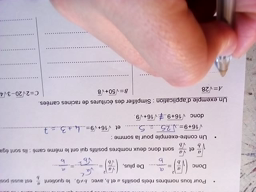 • Pour tous nombres réels positifs a et b, avec b≠0, le quotient a/b est aussi pos
Donc (√(a/b))² = a/b De plus, (√a/√b)² = √a²/√b² = a/b
√(a/b) et √a/√b sont donc deux nombres positifs qui ont le même carré : ils sont éga
• Un contre-exemple pour la somme
√16+9 = √25 = 5 et √16+√9 = 4+3 = 7
donc √16+9 ≠ √16+√9
Un exemple d'application : Simplifier des écritures de racines carrées
A=√28 B=√50+√8 C=2√20-3√4